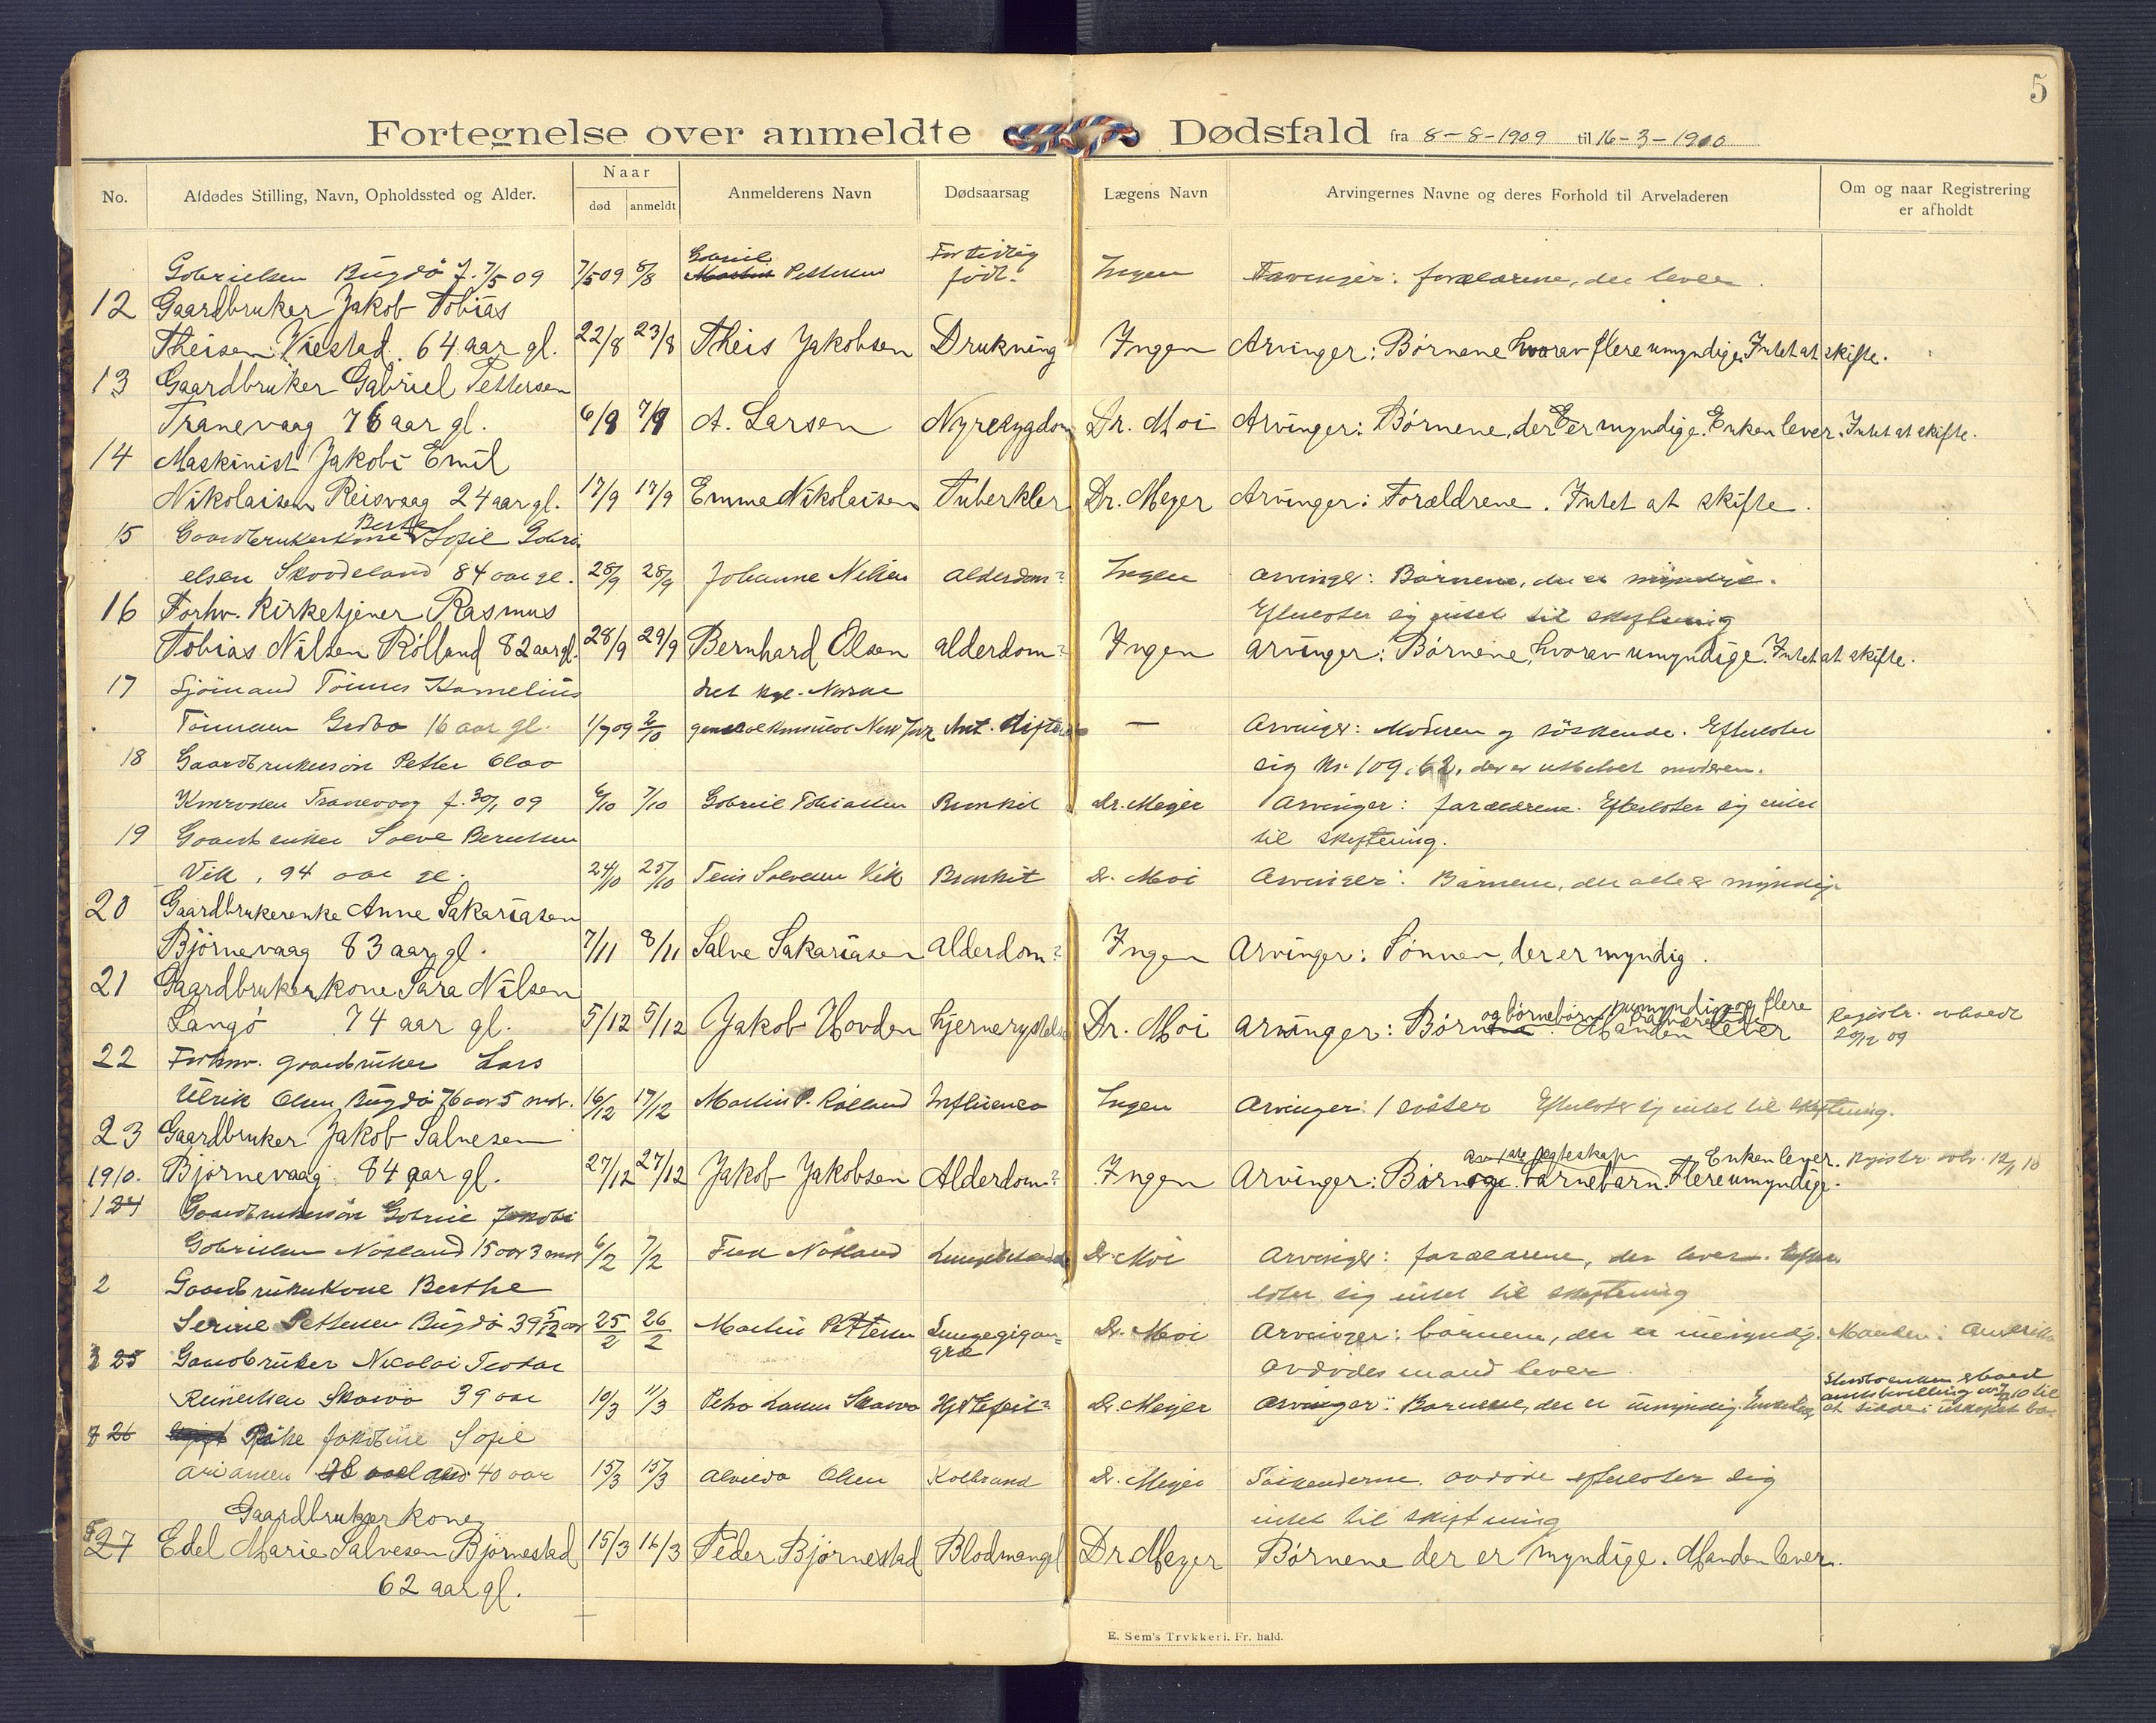 5
Fortegnelse over anmeldte Dødsfald fra 8-8-1909 til 16-3-1910
No. Afdødes Stilling, Navn, Opholdssted og Alder. Naar død anmeldt Anmelderens Navn Dødsaarsag Lægens Navn Arvingernes Navne og deres Forhold til Arveladeren Om og naar Registrering er afholdt
Gabriel Fortidlig
Gabrielsen Bugdø f. 7/5 09 7/5 09 8/8 Pettersen født. Ingen forældrene, der lever
12 Gaardbruker Jakob Tobias
Theisen Viestad. 64 aar gl. 22/8 23/8 Theis Jakobsen Drukning Ingen Arvinger: Børnene hvorav flere umyndige. Intet at skifte.
13 Gaardbruker Gabriel Pettersen
Tranevaag 76 aar gl. 6/9 7/9 A. Larsen Nyresygdom Dr. Moi Arvinger: Børnene, der er myndige. Enken lever. Intet at skifte.
14 Maskinist Jakobi Emil
Nikolaisen Reisvaag 24 aar gl. 17/9 17/9 Emma Nikolaisen Tuberkler Dr. Meyer Arvinger: Forældrene. Intet at skifte.
15 Gaardbrukerkone Berthe Sofie Gabri-
elsen Skoddeland 84 aar gl. 28/9 28/9 Johanne Nilsen alderdom? Ingen arvinger: Børnene, der er myndige.
Efterlater sig intet til skiftning
16 Forhv. Kirketjener Rasmus
Tobias Nilsen Rølland 82 aar gl. 28/9 29/9 Bernhard Olsen alderdom? Ingen arvinger: Børnene, hvorav umyndige. Intet at skifte.
17 Sjømand Tønnes Kornelius det kgl. Norske
Tønnesen 16 aar gl. 1/9 09 2/10 generalkonsulat New York Ant. difteri — Arvinger: Moderen og søskende. Efterlater
sig kr. 109,62, der er utbetalt moderen.
18 Gaardbrukersøn Petter Olao
Tranevaag f. 30/1 09 6/10 7/10 Gabriel Tobiassen Bronkit Dr. Meyer Arvinger: forældrene. Efterlater sig intet
til skiftning.
19 Gaardbruker Salve Berntsen
Vik, 94 aar gl. 24/10 25/10 Salvesen Vik Bronkit Dr. Moi Arvinger: Børnene, der alle er myndige
20 Gaardbrukerenke Anne Sakariasen
Bjørnevaag 83 aar gl. 7/11 8/11 Salve Sakariasen alderdom? Ingen Arvinger: Sønnen, der er myndig.
21 Gaardbrukerkone Sara Nilsen
og børnebørn, umyndige og flere
Langø 74 aar gl. 5/12 5/12 Jakob Hovden hjernerystelse Dr. Moi arvinger: Børn Manden lever Registr. avholdt
29/12 09
22 Forhv. gaardbruker Lars
Ulrik Olsen Bugdø 76 aar 5 mdr. 16/12 17/12 Martin P. Rølland Influensa Ingen Arvinger: 1 søster Efterlater sig intet til skiftning.
23 Gaardbruker Jakob Salvesen
Enken lever. Registr. avh. 12/1 10
1910. Bjørnevaag 84 aar gl. 27/12 27/12 Jakob Jakobsen Alderdom? Ingen Arvinger: Børn og barnebarn. Flere umyndige.
1 24 Gaardbrukersøn Gabriel Jakobi
Gabrielsen Nøsland 15 aar 3 mdr 6/2 7/2 Nøsland Dr. Moi Arvinger: forældrene, der lever. Efter-
later sig intet til skiftning
2 Gaardbrukerkone Berthe
Serine Pettersen Bugdø 39 5/12 aar 25/2 26/2 Martin Pettersen Lungegangræn Dr. Moi Arvinger: børnene, der er umyndig. Manden i Amerika
Avdødes mand lever
3 25 Gaardbruker Nicolai Teodor
Reinertsen Skarvø 39 aar 10/3 11/3 Skarvø Hjertefeil? Dr. Meyer Arvinger: Børnene, der er umyndig. Enken lever
at sidde i uskiftet bo.
26 Pike Jakobine Sofie
40 aar 15/3 15/3 Alvilda Olsen Koldbrand Dr. Meyer Søskenderne. Avdøde efterlater sig
intet til skiftning
Gaardbrukerkone
5 27 Edel Marie Salvesen Bjørnestad 15/3 16/3 Peder Bjørnestad Blodmangel Dr. Meyer Børnene der er myndige. Manden lever.
62 aar gl.
E. Sem's Trykkeri. Fr. hald.